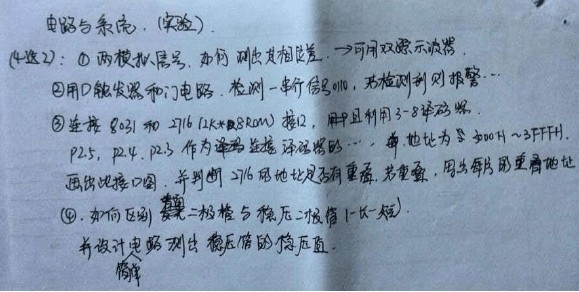 电路与系统.(实验).
(4选2):①两模拟信号,如何测出其相位差.→可用双踪示波器.
②用D触发器和门电路.检测一串行信号0110,若检测到则报警…
③连接8031和2716(2K*8ROM)接口,用且利用3-8译码器.
P2.5,P2.4,P2.3作为连接译码器的…,地址为3000H~3FFFH.
画出此接口图.并判断2716的地址是否有重叠.若重叠,写出每片的重叠地址
④.如何区别二极管与稳压二极管(一长一短).
并设计简单电路测出稳压管的稳压值.